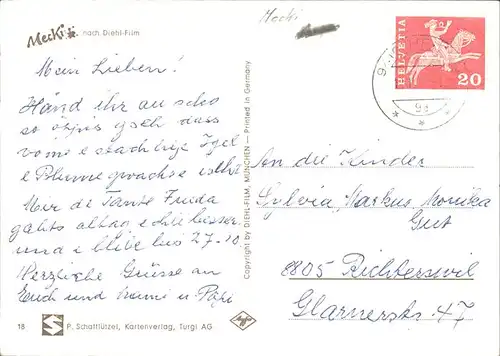 Mecki nach Diehl-Film
Mein Lieben!
Händ ihr au scho
so öppis gseh dass
vome stachlige Igel
e Blueme gwachse isch?
Mir de Tante Frieda
gahts alltag echli besser
und e blibe bis 27.10
Herzliche Grüsse an
Euch und Mami u Papi
18 S P. Schaftlützel, Kartenverlag, Turgi AG
Copyright by DIEHL-FILM, MÜNCHEN - Printed in Germany
Agfa
Mecki
HELVETIA
20
9
An die Kinder
Sylvia Markus Monika
Gut
8805 Richterswil
Glarnerstr. 47